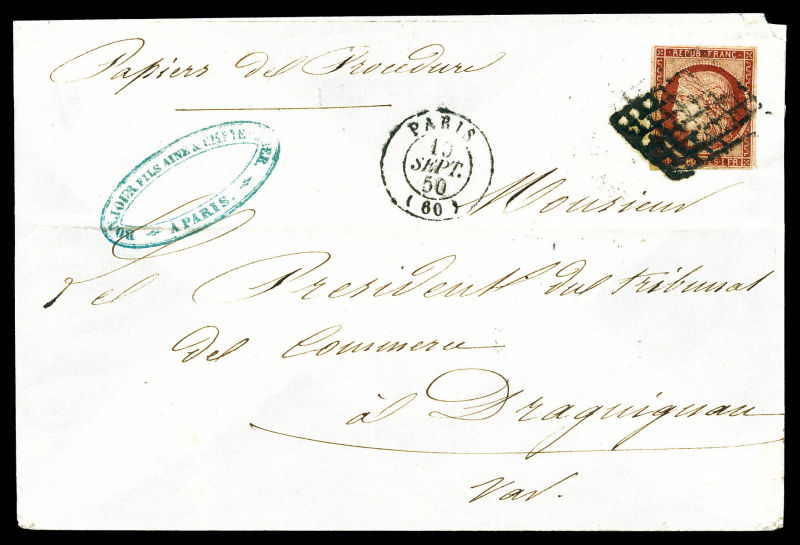 Papiers de Procedure
REPUB. FRANC.
1 FR.
PARIS
SEPT.
50
(60)
JOUR FILS AINE &
A PARIS.
Monsieur
Le President du Tribunal
de Commerce
à Draguignan
Var.